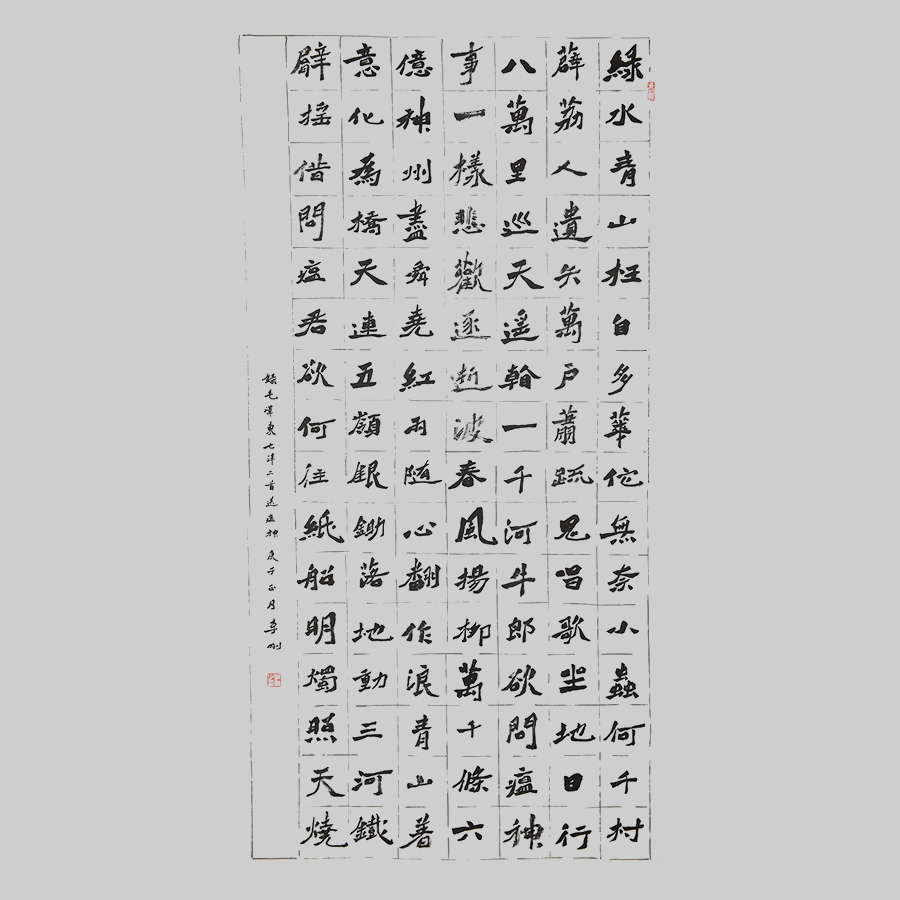 綠水青山枉自多華佗無奈小蟲何千村
薜荔人遺矢萬戶蕭疏鬼唱歌坐地日行
八萬里巡天遥看一千河牛郎欲問瘟神
事一樣悲歡逐逝波春風揚柳萬千條六
億神州盡舜堯紅雨随心翻作浪青山著
意化為橋天連五嶺銀鋤落地動三河鐵
臂摇借問瘟君欲何往紙船明燭照天燒
錄毛澤東七律二首送瘟神庚子正月李刚